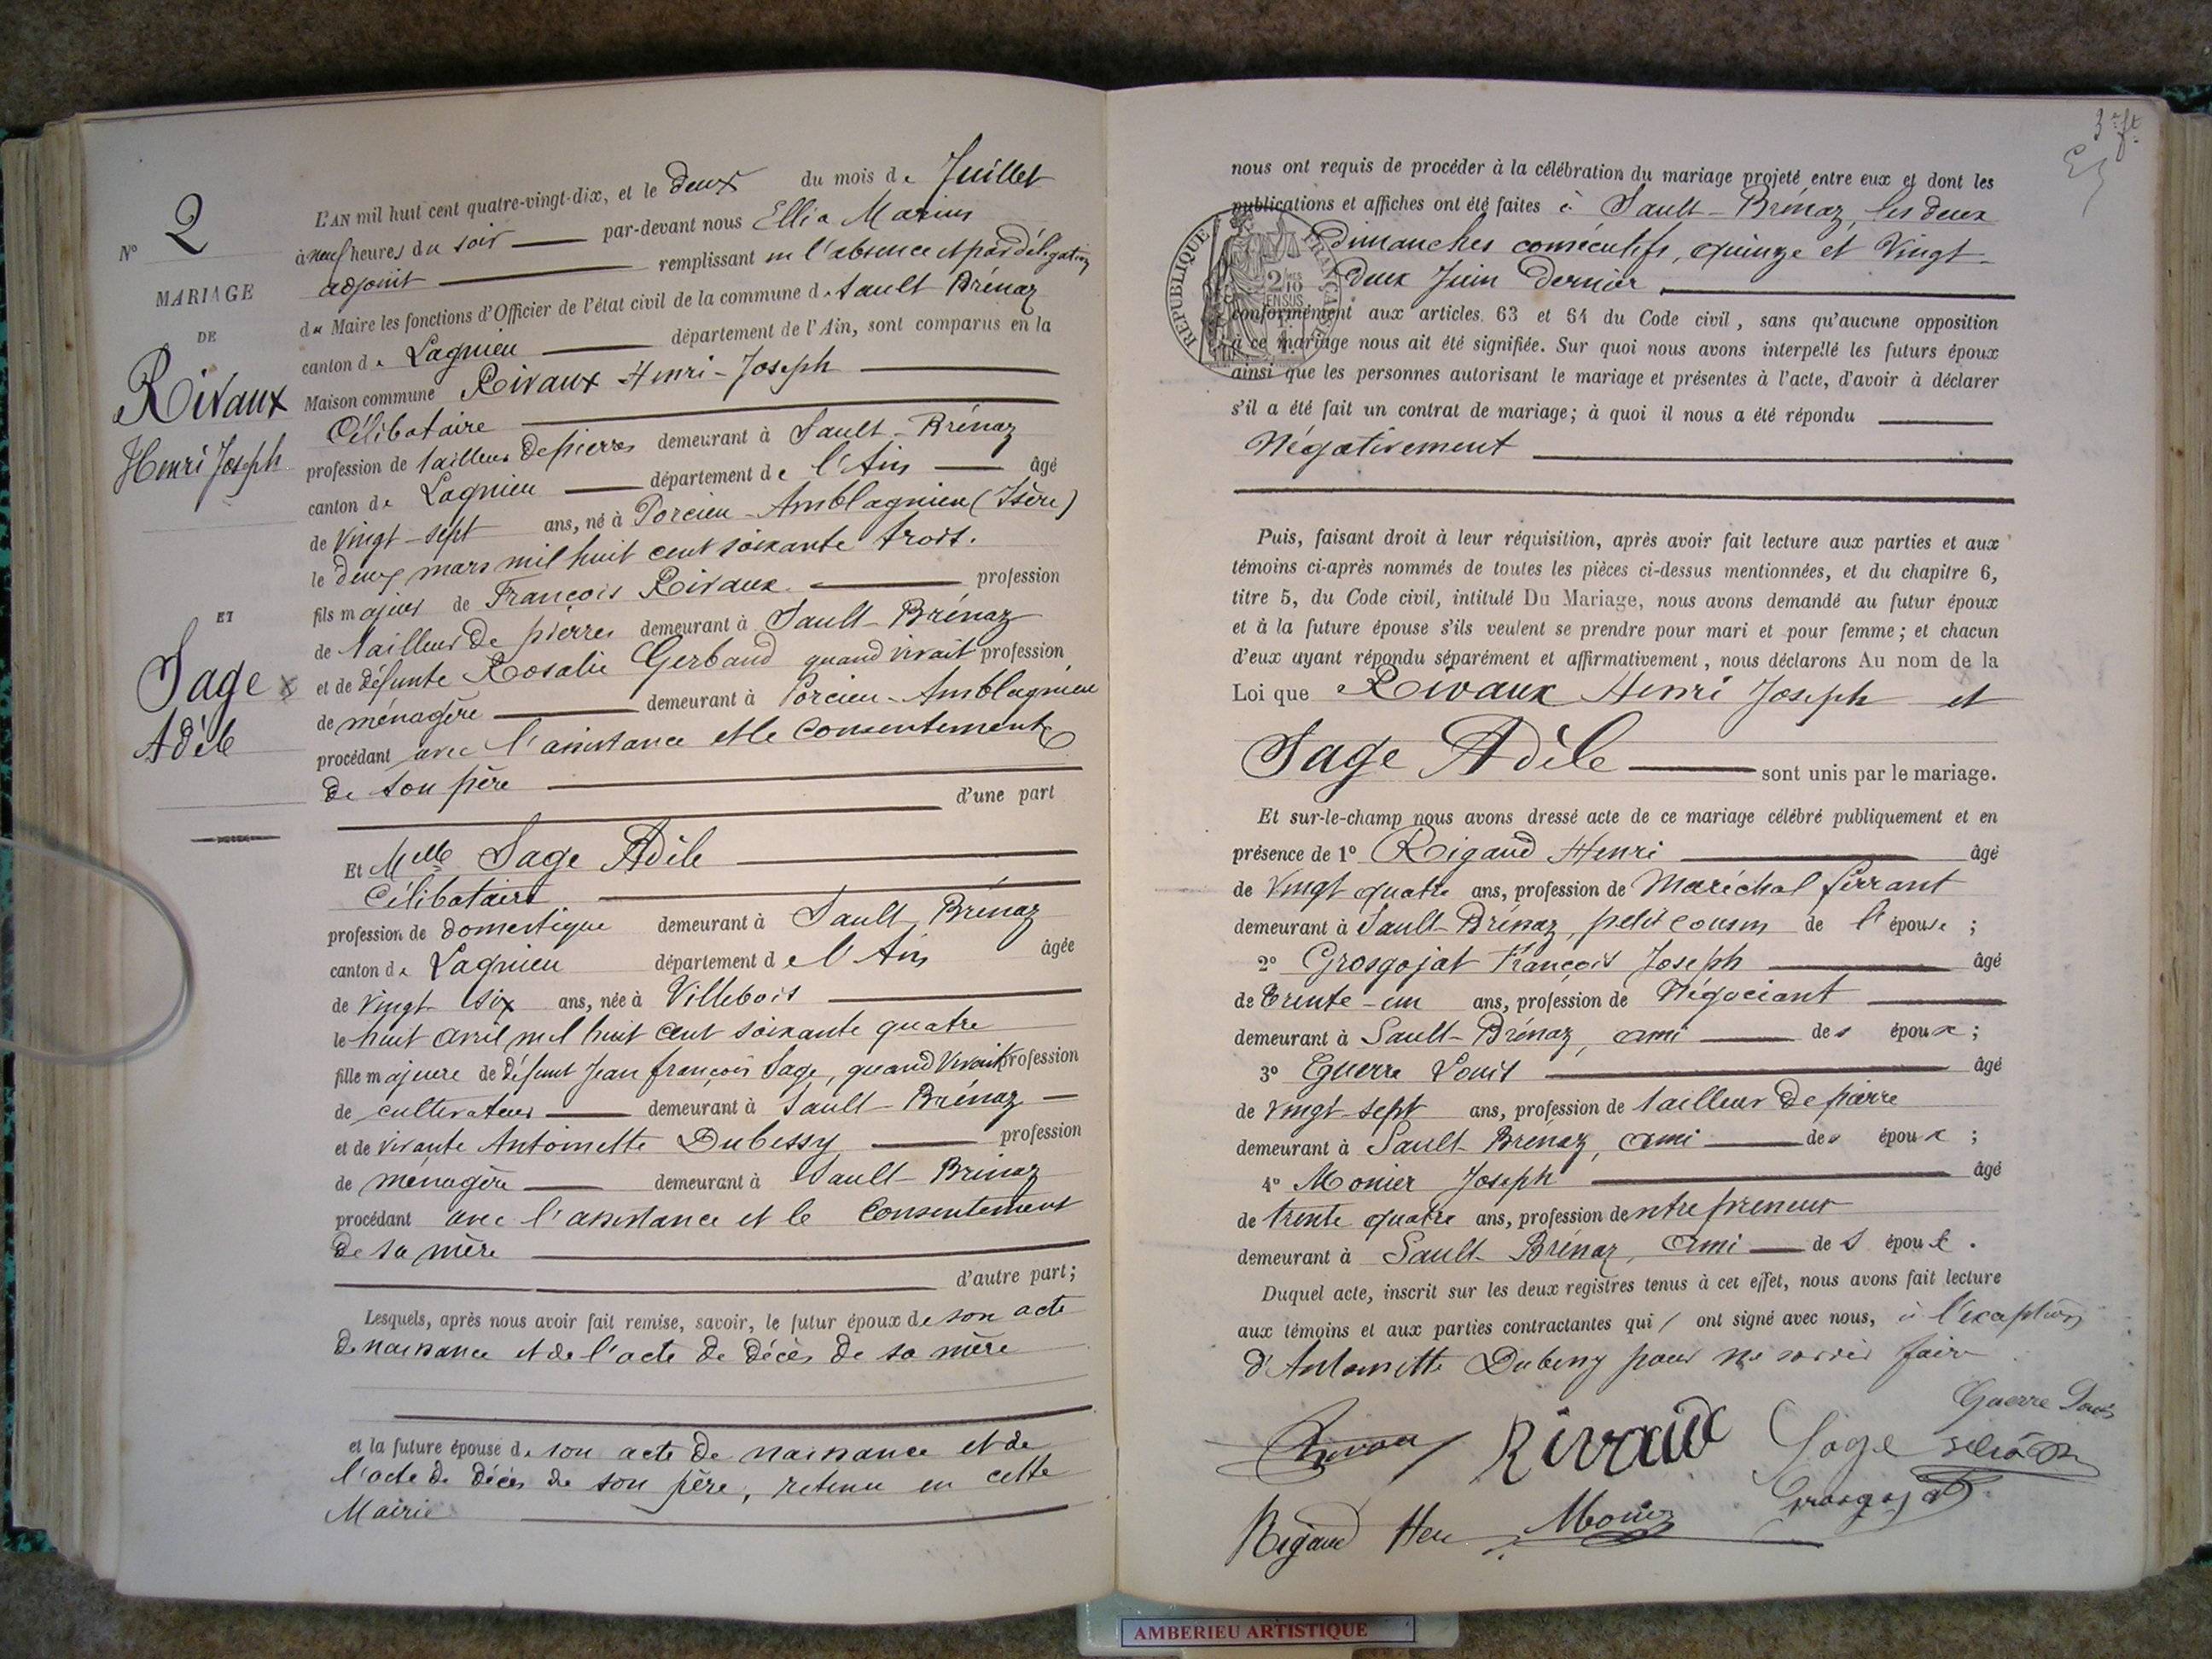 N° 2
MARIAGE
DE
Rivaux
Henri Joseph
ET
Sage
Adèle
L'AN mil huit cent quatre-vingt-dix, et le deux du mois de Juillet
à neuf heures du soir par-devant nous Ellia Marius
adjoint remplissant en l'absence et par délégation
du Maire les fonctions d'Officier de l'état civil de la commune de Sault Brénaz
canton de Lagnieu département de l'Ain, sont comparus en la
Maison commune Rivaux Henri-Joseph
Célibataire
profession de tailleur de pierres demeurant à Sault-Brénaz
canton de Lagnieu département de l'Ain âgé
de Vingt-sept ans, né à Porcieu-Amblagnieu (Isère)
le deux mars mil huit cent soixante trois.
fils majeur de François Rivaux profession
de tailleur de pierres demeurant à Sault-Brénaz
et de défunte Rosalie Gerbaud quand vivait profession
de ménagère demeurant à Porcieu-Amblagnieu
procédant avec l'assistance et le consentement
de son père
d'une part
Et Melle Sage Adèle
Célibataire
profession de domestique demeurant à Sault-Brénaz
canton de Lagnieu département de l'Ain âgée
de Vingt-six ans, née à Villebois
le huit avril mil huit cent soixante quatre
fille majeure de défunt Jean françois Sage, quand Vivait profession
de cultivateur demeurant à Sault-Brénaz
et de vivante Antoinette Dubessy profession
de ménagère demeurant à Sault-Brénaz
procédant avec l'assistance et le consentement
de sa mère
d'autre part;
Lesquels, après nous avoir fait remise, savoir, le futur époux de son acte
de naissance et de l'acte de décès de sa mère
et la future épouse de son acte de naissance et de
l'acte de décès de son père, retenu en cette
Mairie
3e ft
nous ont requis de procéder à la célébration du mariage projeté entre eux et dont les
publications et affiches ont été faites à Sault-Brénaz, les deux
dimanches consécutifs, quinze et Vingt-
deux Juin dernier
RÉPUBLIQUE FRANÇAISE
2/10 EN SUS
conformément aux articles 63 et 64 du Code civil, sans qu'aucune opposition
à ce mariage nous ait été signifiée. Sur quoi nous avons interpellé les futurs époux
ainsi que les personnes autorisant le mariage et présentes à l'acte, d'avoir à déclarer
s'il a été fait un contrat de mariage; à quoi il nous a été répondu
Négativement
Puis, faisant droit à leur réquisition, après avoir fait lecture aux parties et aux
témoins ci-après nommés de toutes les pièces ci-dessus mentionnées, et du chapitre 6,
titre 5, du Code civil, intitulé Du Mariage, nous avons demandé au futur époux
et à la future épouse s'ils veulent se prendre pour mari et pour femme; et chacun
d'eux ayant répondu séparément et affirmativement, nous déclarons Au nom de la
Loi que Rivaux Henri Joseph et
Sage Adèle sont unis par le mariage.
Et sur-le-champ nous avons dressé acte de ce mariage célébré publiquement et en
présence de 1° Rigaud Henri âgé
de Vingt quatre ans, profession de Maréchal ferrant
demeurant à Sault-Brénaz, petit cousin de l'épouse;
2° Grosgojat François Joseph âgé
de trente-un ans, profession de Négociant
demeurant à Sault-Brénaz, ami des époux;
3° Eguerre Louis âgé
de Vingt-sept ans, profession de tailleur de pierre
demeurant à Sault-Brénaz, ami des époux;
4° Monier Joseph âgé
de trente quatre ans, profession d'entrepreneur
demeurant à Sault-Brénaz, ami des époux.
Duquel acte, inscrit sur les deux registres tenus à cet effet, nous avons fait lecture
aux témoins et aux parties contractantes qui / ont signé avec nous, à l'exception
d'Antoinette Dubessy pour ne savoir faire
Guerre Louis
Rivaux Sage
Grosgojat
Rigaud Hen Monier
AMBERIEU ARTISTIQUE